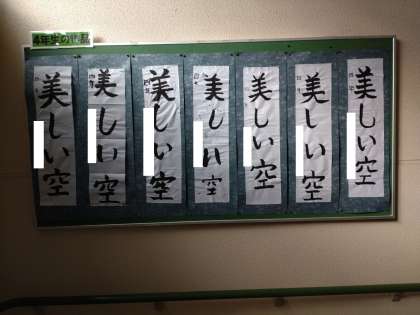 4年生の作品
美しい空
美しい空
美しい空
美しい空
美しい空
美しい空
美しい空